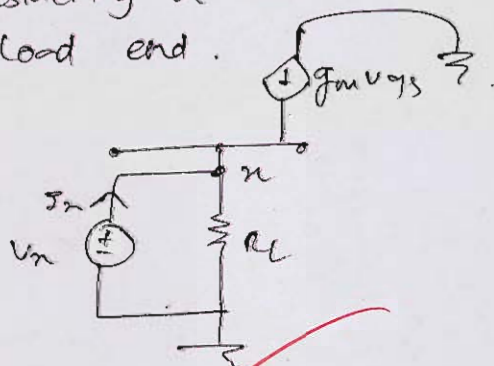 Load end.
gm vgs
x
Ix
Vx
RL